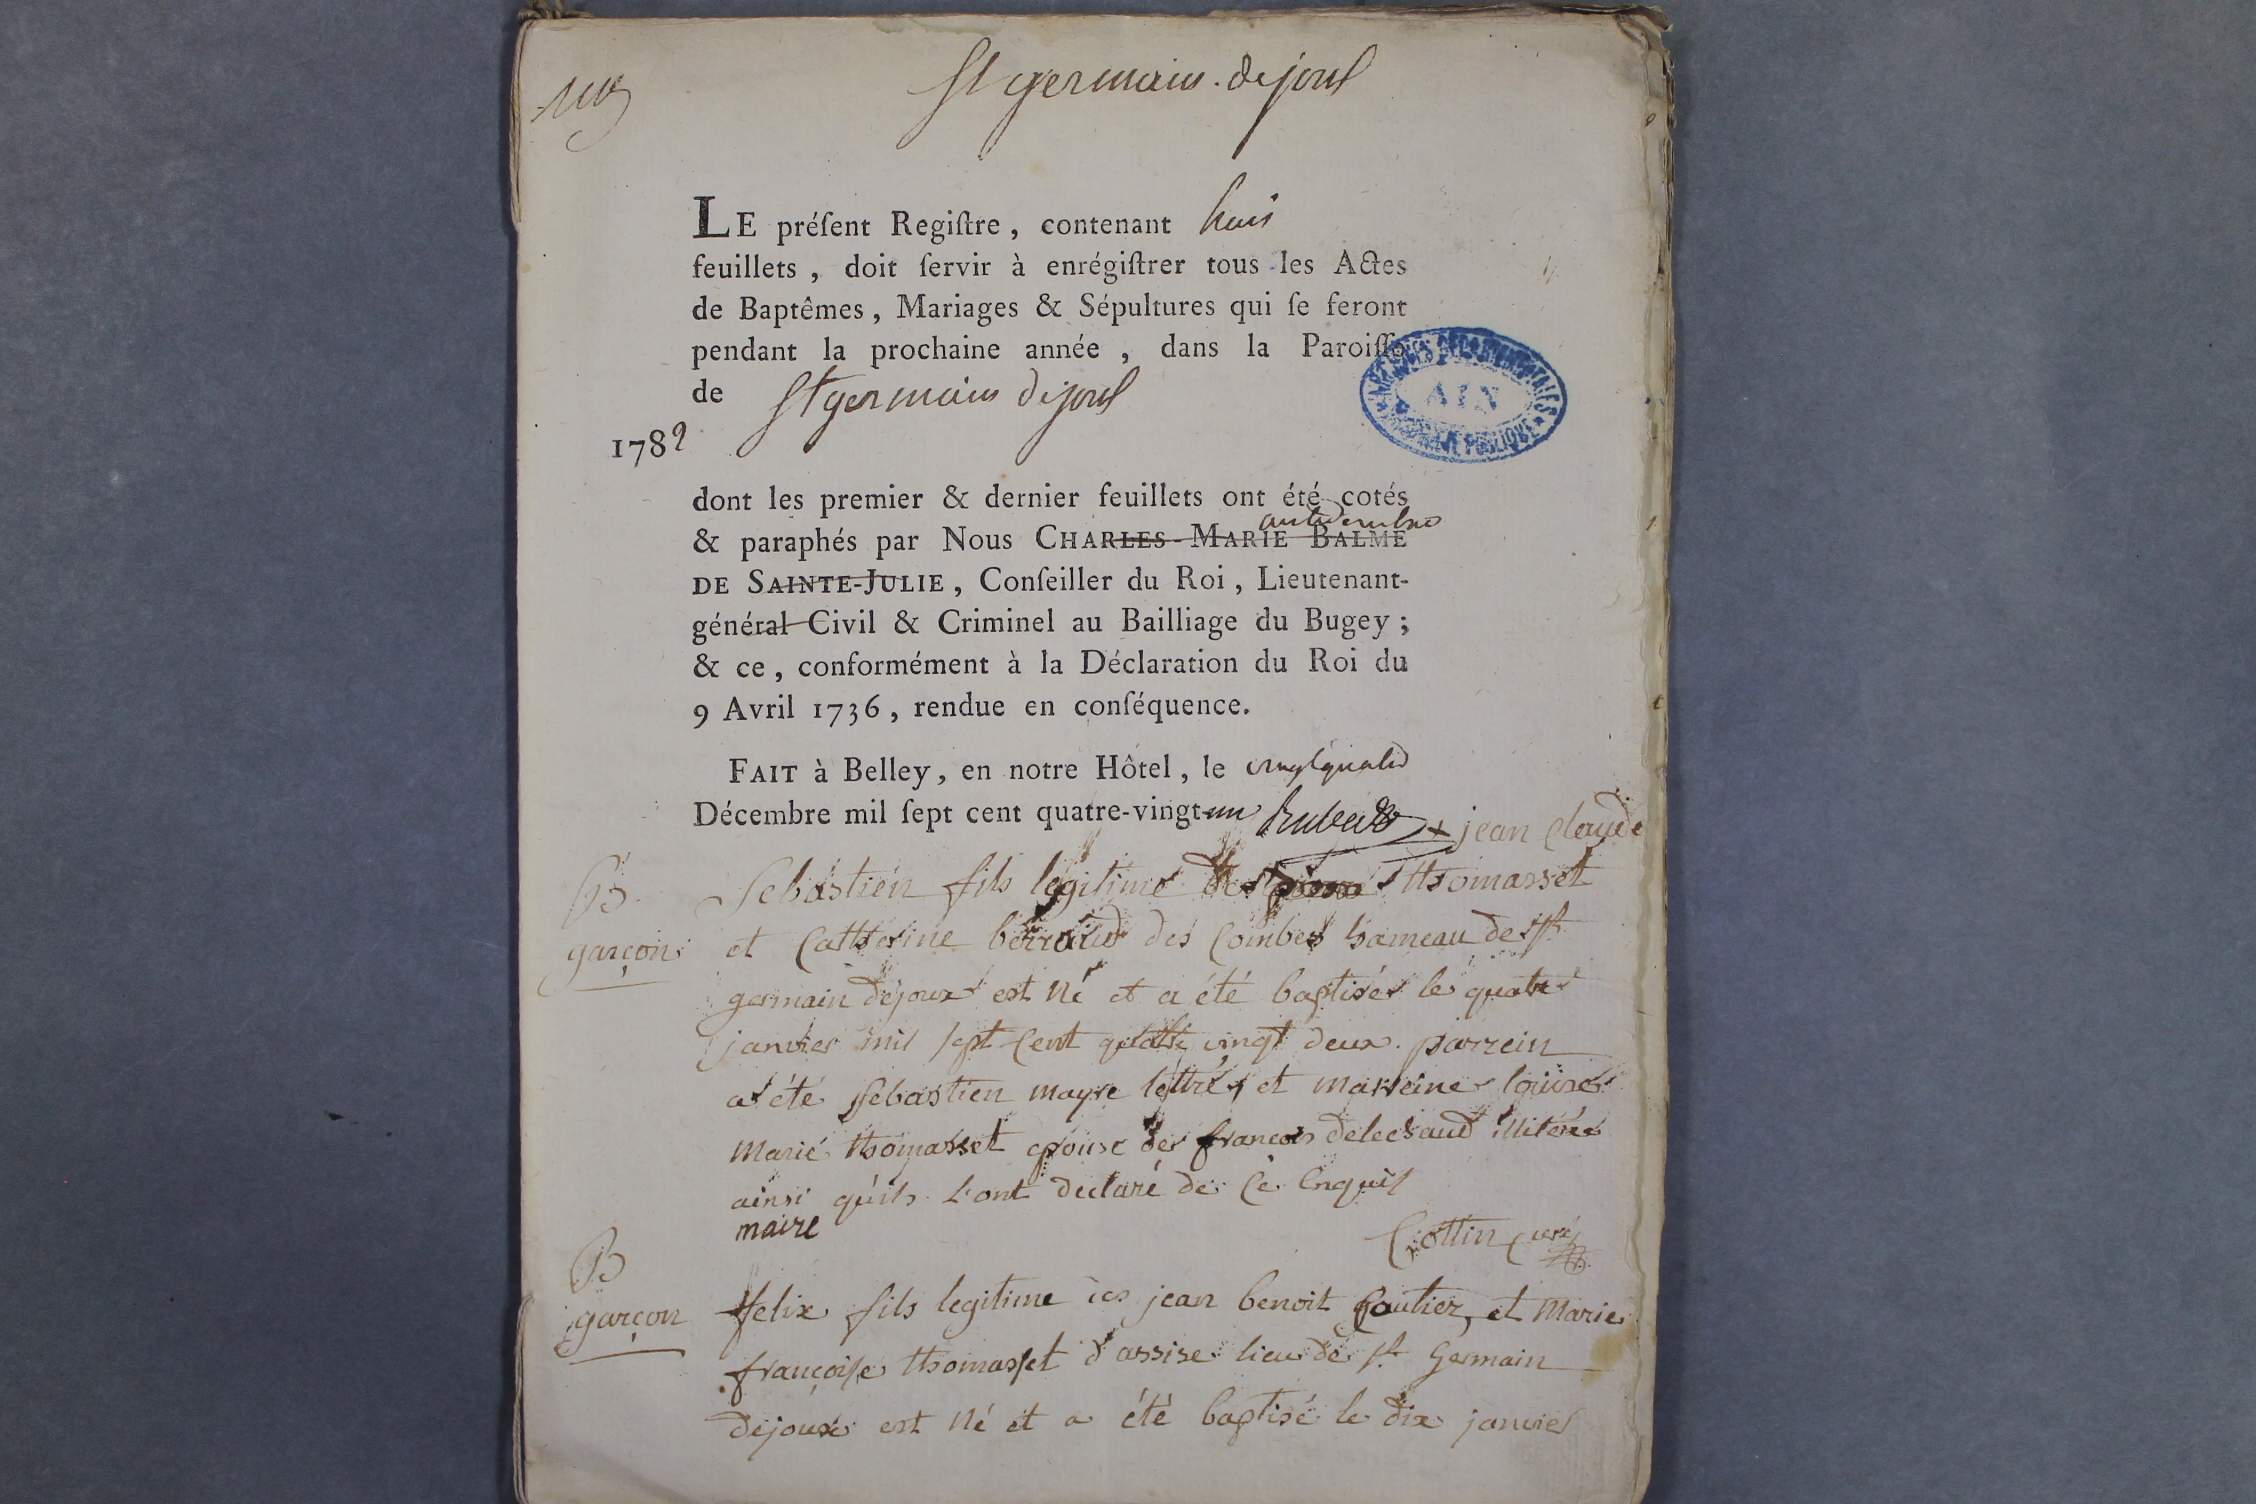 St germain. de joux
LE préſent Regiſtre, contenant huit
feuillets, doit ſervir à enrégiſtrer tous les Actes
de Baptêmes, Mariages & Sépultures qui ſe feront
pendant la prochaine année, dans la Paroiſſe
de St germain de joux
ARCHIVES DÉPARTEMENTALES
AIN
PUBLIQUE
1782
dont les premier & dernier feuillets ont été cotés
& paraphés par Nous CHARLES-MARIE BALME
DE SAINTE-JULIE, Conſeiller du Roi, Lieutenant-
général Civil & Criminel au Bailliage du Bugey;
& ce, conformément à la Déclaration du Roi du
9 Avril 1736, rendue en conſéquence.
FAIT à Belley, en notre Hôtel, le vingt quatre
Décembre mil ſept cent quatre-vingt-un
+ jean claude
B
garçon
Sebastien fils legitime de thomasset
et Catherine berraud des Combes hameau de st
germain dejoux est né et a été baptisé le quatre
janvier mil sept Cent quatre vingt deux. parrein
a été sebastien mayre lettré, et marreine louise
Marie thomasset epouse de françois delechaud illiterée
ainsi qu'ils l'ont declaré de Ce Enquis
maire
Crottin curé
B
garçon
felix fils legitime de jean benoit gautier, et Marie
françoise thomasset d'assise lieu de st Germain
dejoux est né et a été baptisé le dix janvier